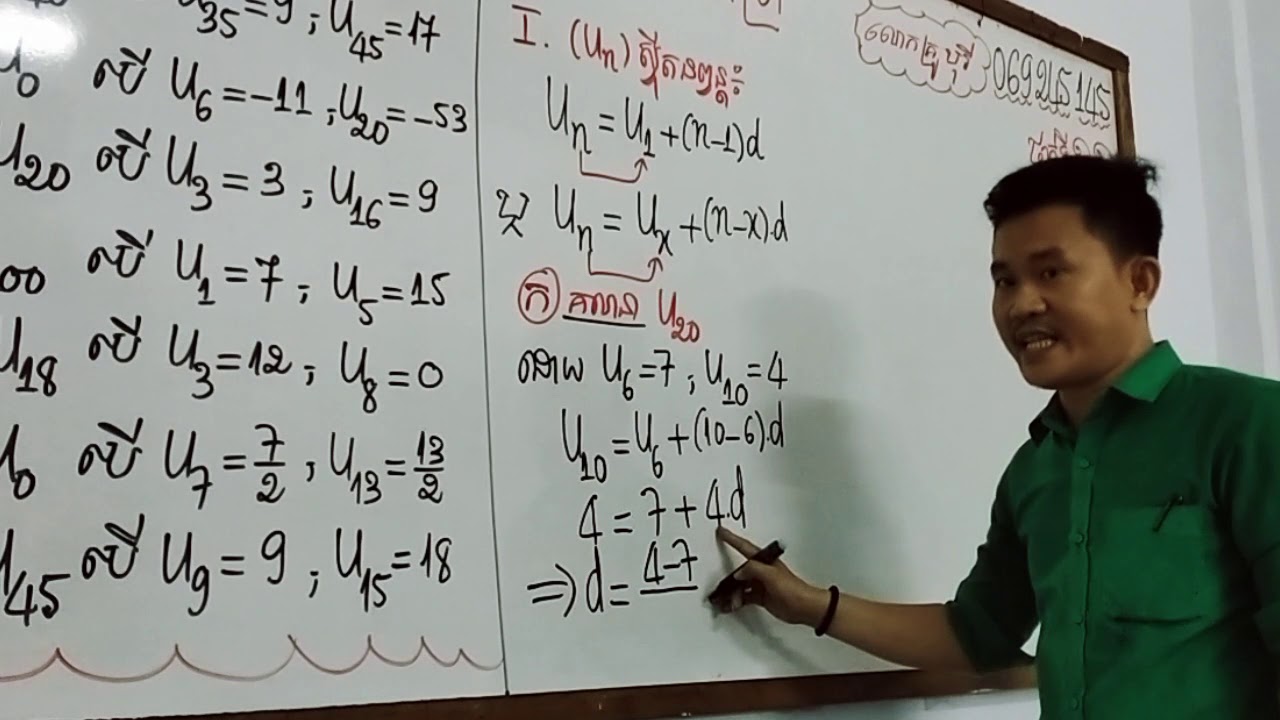 U₃₅=9 ; U₄₅=17
លើ U₆=-11 ; U₂₀=-53
U₂₀ លើ U₃=3 ; U₁₆=9
លើ U₁=7 ; U₅=15
U₁₈ លើ U₃=12 ; U₈=0
លើ U₇=7/2 ; U₁₃=13/2
U₄₅ លើ U₉=9 ; U₁₅=18
I. (Uₙ) ស្វ៊ីតនព្វន្ត៖
Uₙ=U₁+(n-1)d
ឬ Uₙ=Uₓ+(n-x).d
ក គណនា U₂₀
ដោយ U₆=7 ; U₁₀=4
U₁₀=U₆+(10-6).d
4=7+4.d
⇒ d=4-7
លោកគ្រូ ឫទ្ធី
069 245 145